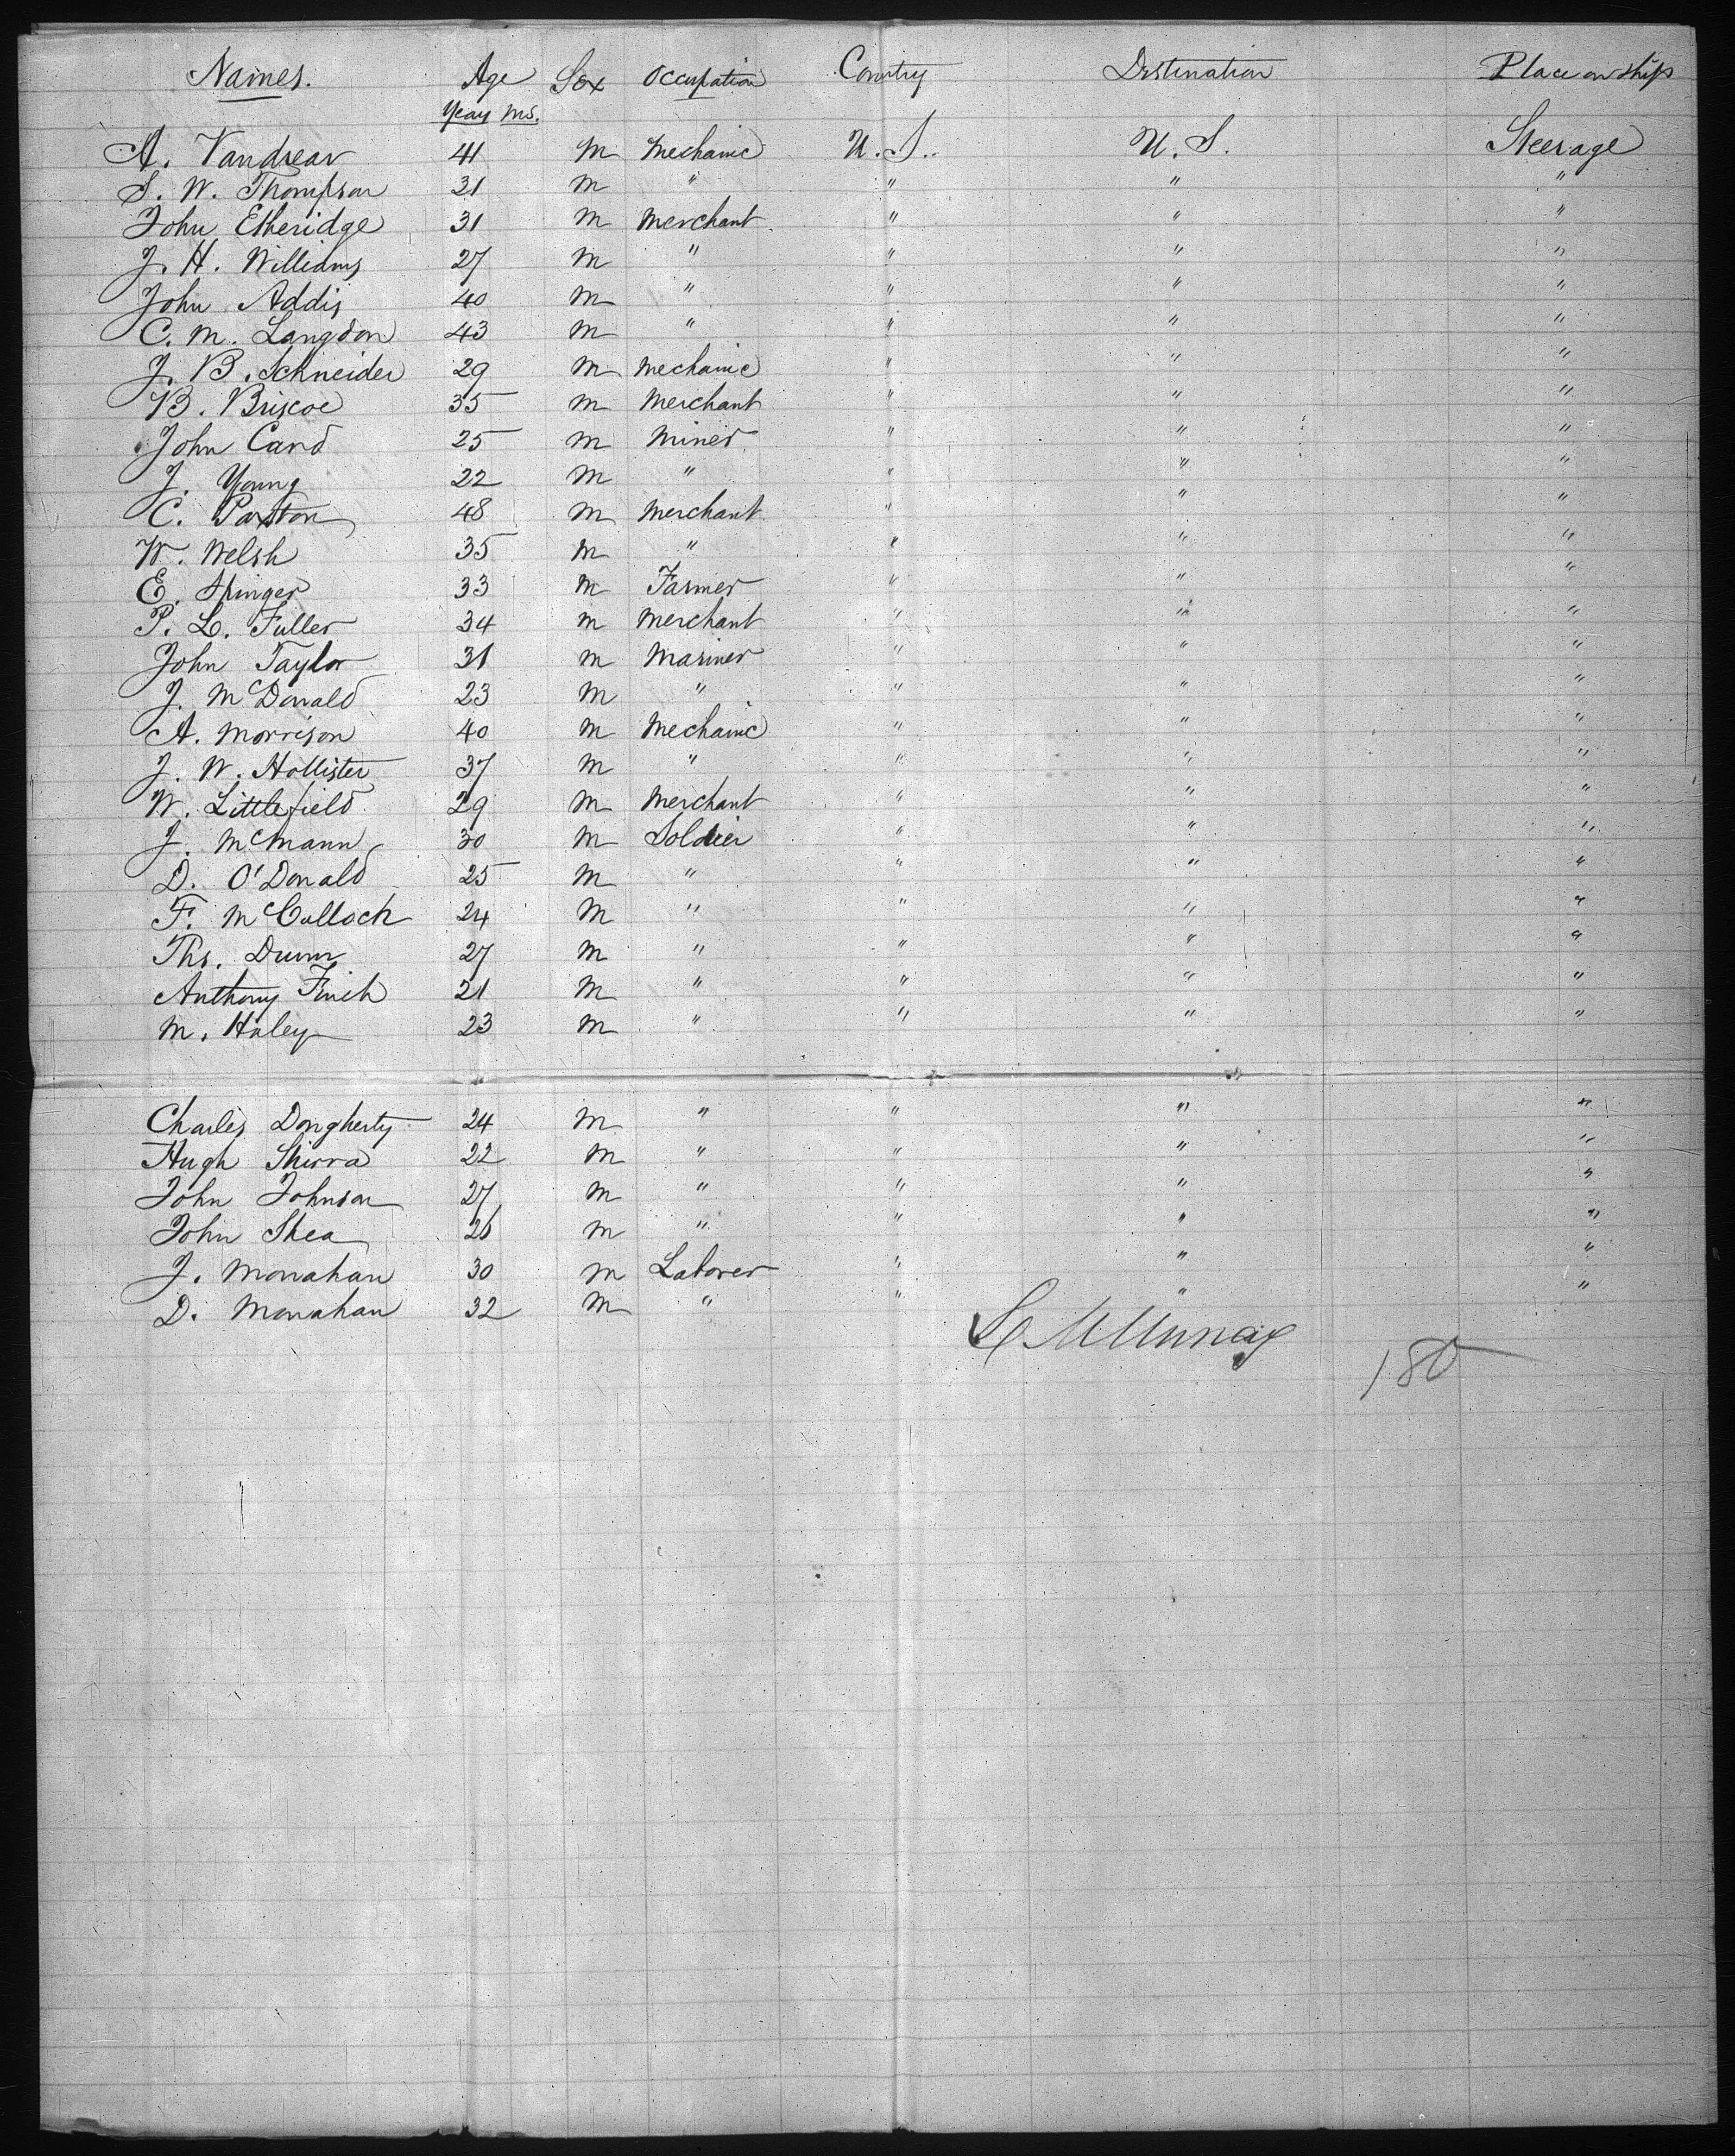 Names. Age Sex Occupation Country Destination Place on ship
Years Ms.
A. Vandrear 41 M Mechanic U.S. U.S. Steerage
S. W. Thompson 31 M " " " "
John Etheridge 31 M Merchant " " "
J. H. Williams 27 M " " " "
John Addis 40 M " " " "
C. M. Langdon 43 M " " " "
J. B. Schneider 29 M Mechanic " " "
B. Briscoe 35 M Merchant " " "
John Card 25 M Miner " " "
J. Young 22 M " " " "
C. Paxton 48 M Merchant " " "
W. Welsh 35 M " " " "
E. 33 M Farmer " " "
P. L. Fuller 34 M Merchant " " "
John Taylor 31 M Mariner " " "
J. McDonald 23 M " " " "
A. Morrison 40 M Mechanic " " "
J. W. Hollister 37 M " " " "
W. Littlefield 29 M Merchant " " "
J. McMann 30 M Soldier " " "
D. O'Donald 25 M " " " "
F. McCulloch 24 M " " " "
Ths. Dunn 27 M " " " "
Anthony Finch 21 M " " " "
M. Haley 23 M " " " "
Charles Dougherty 24 M " " " "
Hugh Shirra 22 M " " " "
John Johnson 27 M " " " "
John Shea M " " " "
J. Monahan 30 M Laborer " " "
D. Monahan 32 M " " " "
180